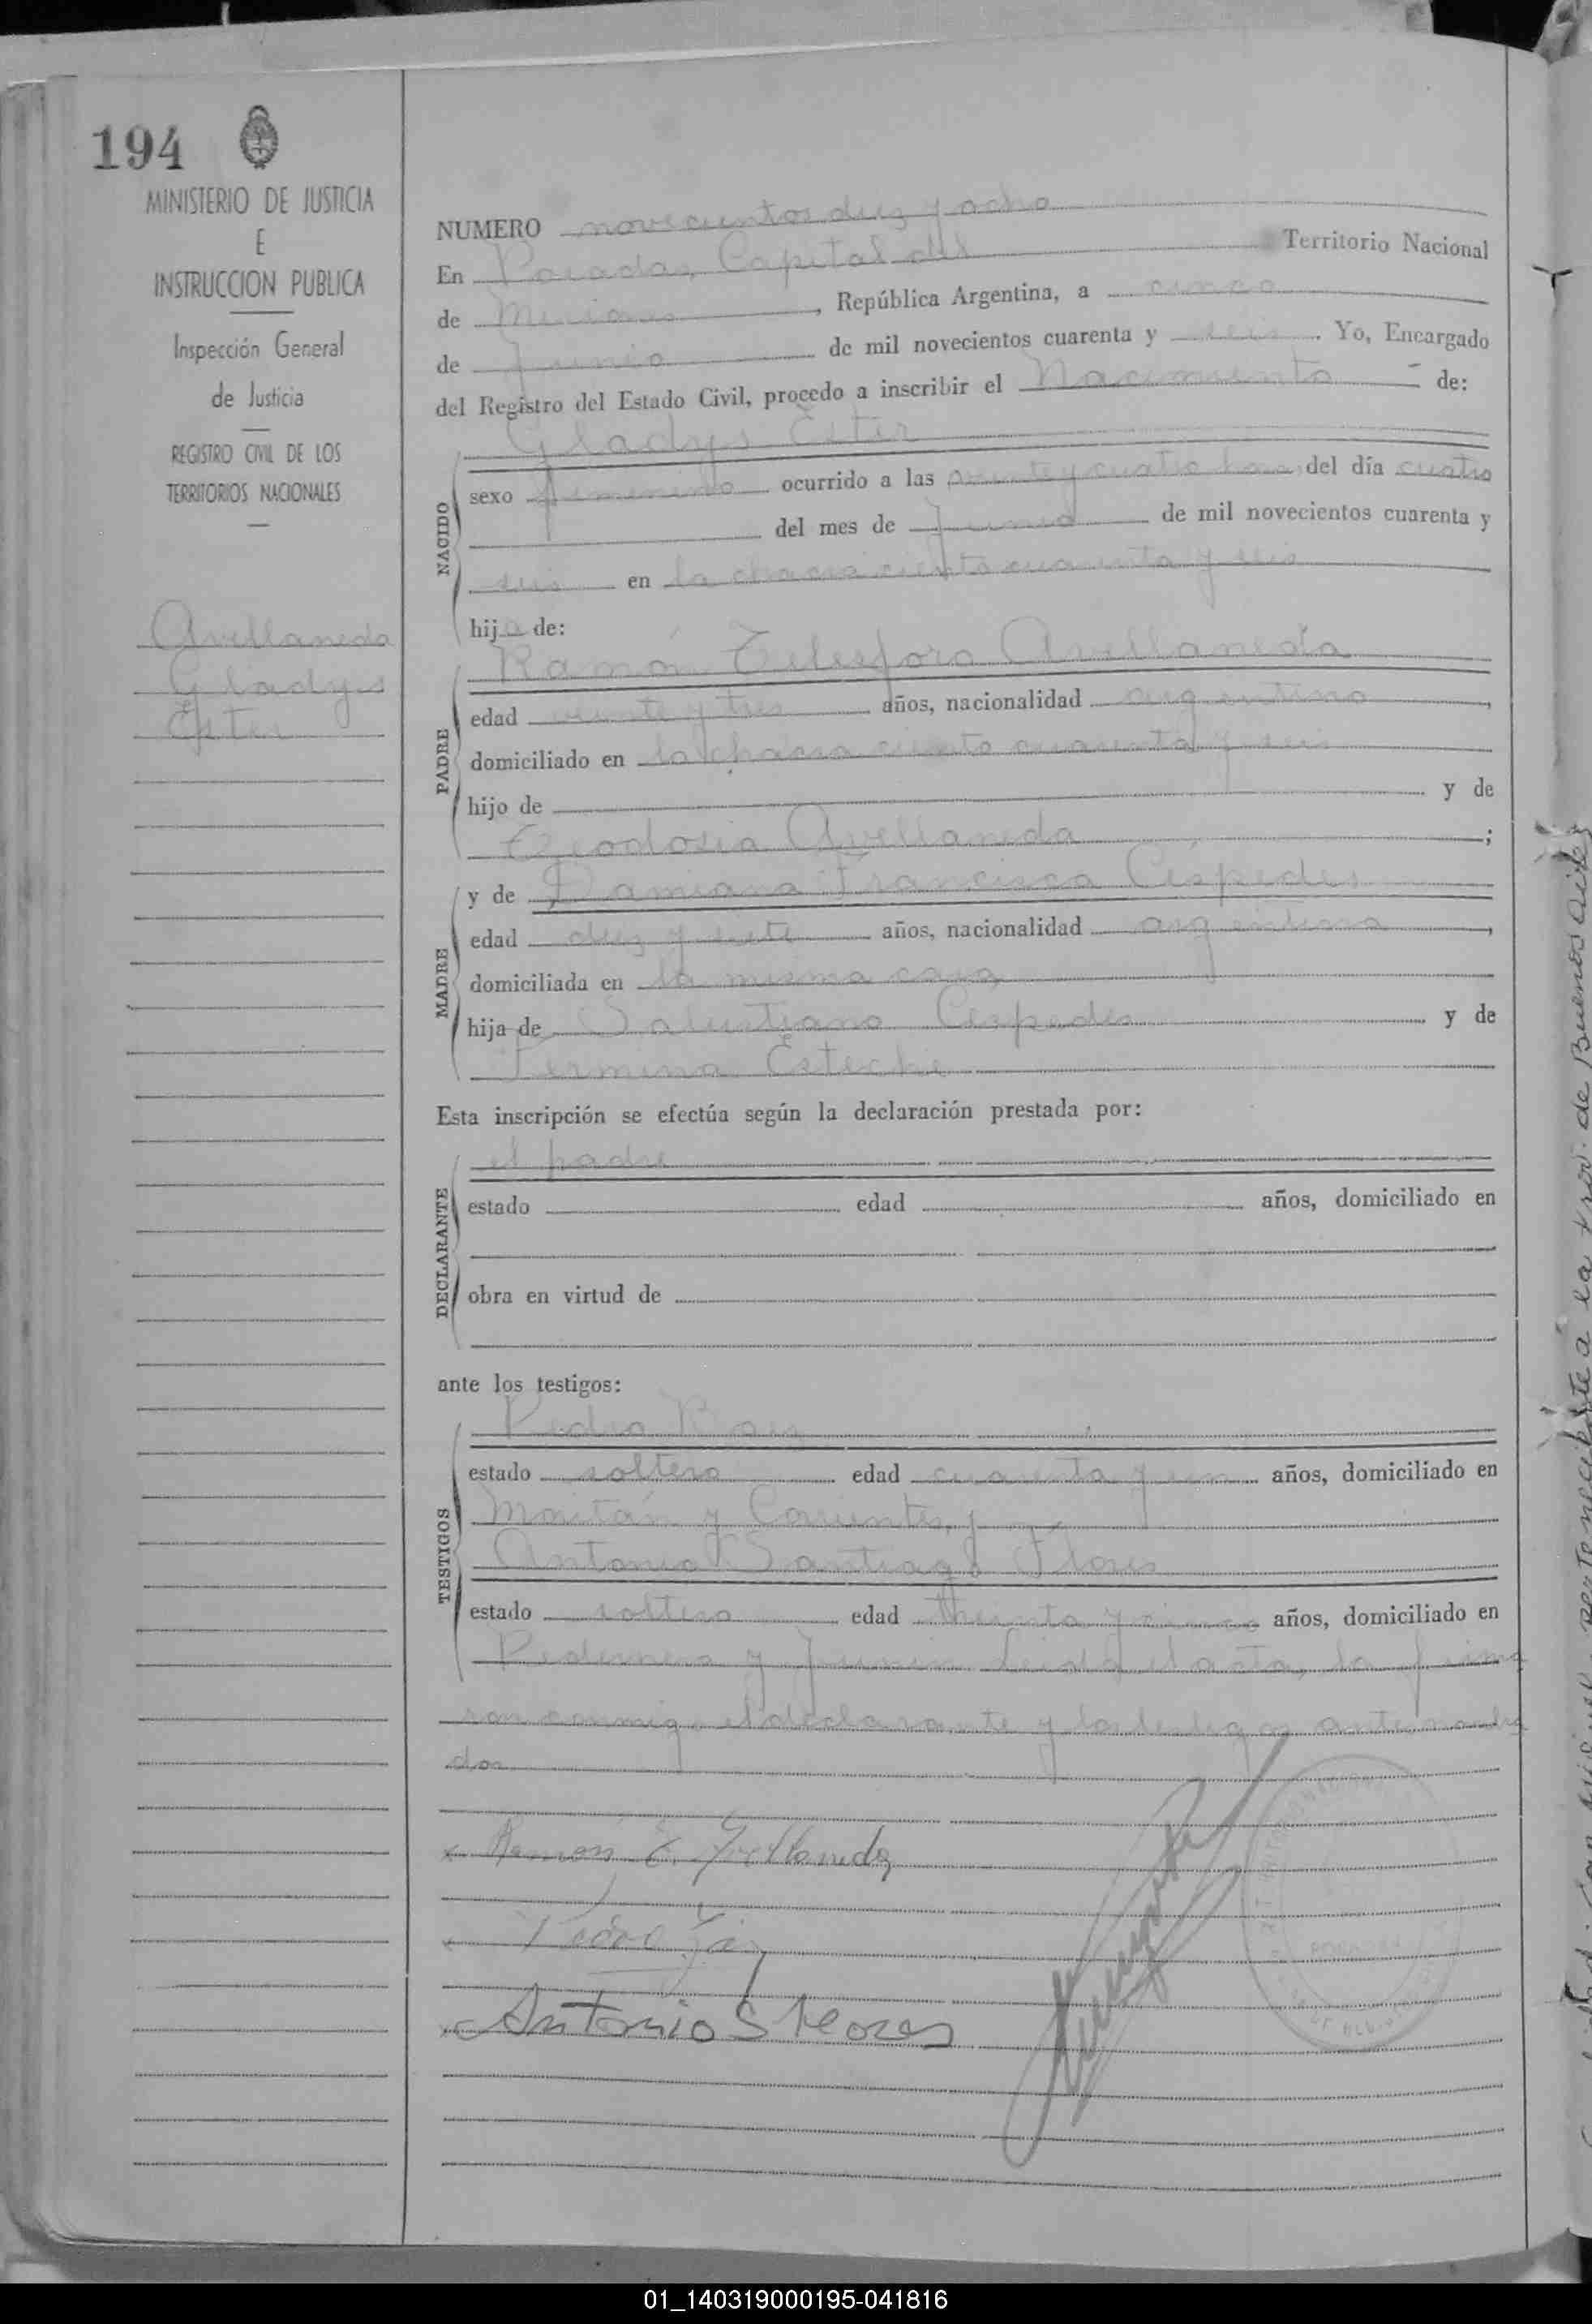 194
MINISTERIO DE JUSTICIA
E
INSTRUCCION PUBLICA
Inspección General
de Justicia
REGISTRO CIVIL DE LOS
TERRITORIOS NACIONALES
Avellaneda
Gladys
Ester
NUMERO novecientos diez y ocho
En Posadas, Capital del Territorio Nacional
de Misiones, República Argentina, a cinco
de Junio de mil novecientos cuarenta y seis. Yo, Encargado
del Registro del Estado Civil, procedo a inscribir el Nacimiento de:
Gladys Ester
NACIDO
sexo femenino ocurrido a las veinte y cuatro horas del día cuatro
del mes de Junio de mil novecientos cuarenta y
seis en la chacra ciento cuarenta y seis
hija de:
Ramón Telesforo Avellaneda
PADRE
edad veinte y tres años, nacionalidad argentino,
domiciliado en la chacra ciento cuarenta y seis
hijo de y de
Teodosia Avellaneda;
y de Damiana Francisca Céspedes
MADRE
edad diez y siete años, nacionalidad argentina,
domiciliada en la misma casa
hija de Salustiano Céspedes y de
Fermina Esteche
Esta inscripción se efectúa según la declaración prestada por:
el padre
DECLARANTE
estado edad años, domiciliado en
obra en virtud de
ante los testigos:
Pedro
TESTIGOS
estado soltero edad cuarenta y un años, domiciliado en
y Corrientes, y
Antonio Santiago Flores
estado soltero edad treinta y cinco años, domiciliado en
Pedernera y Junin. Leida el acta, la firma
ron conmigo el declarante y los testigos antenombra
dos
Ramón T. Avellaneda
Pedro
Antonio S Flores
POSADAS
de Buenos Aires
01_140319000195-041816